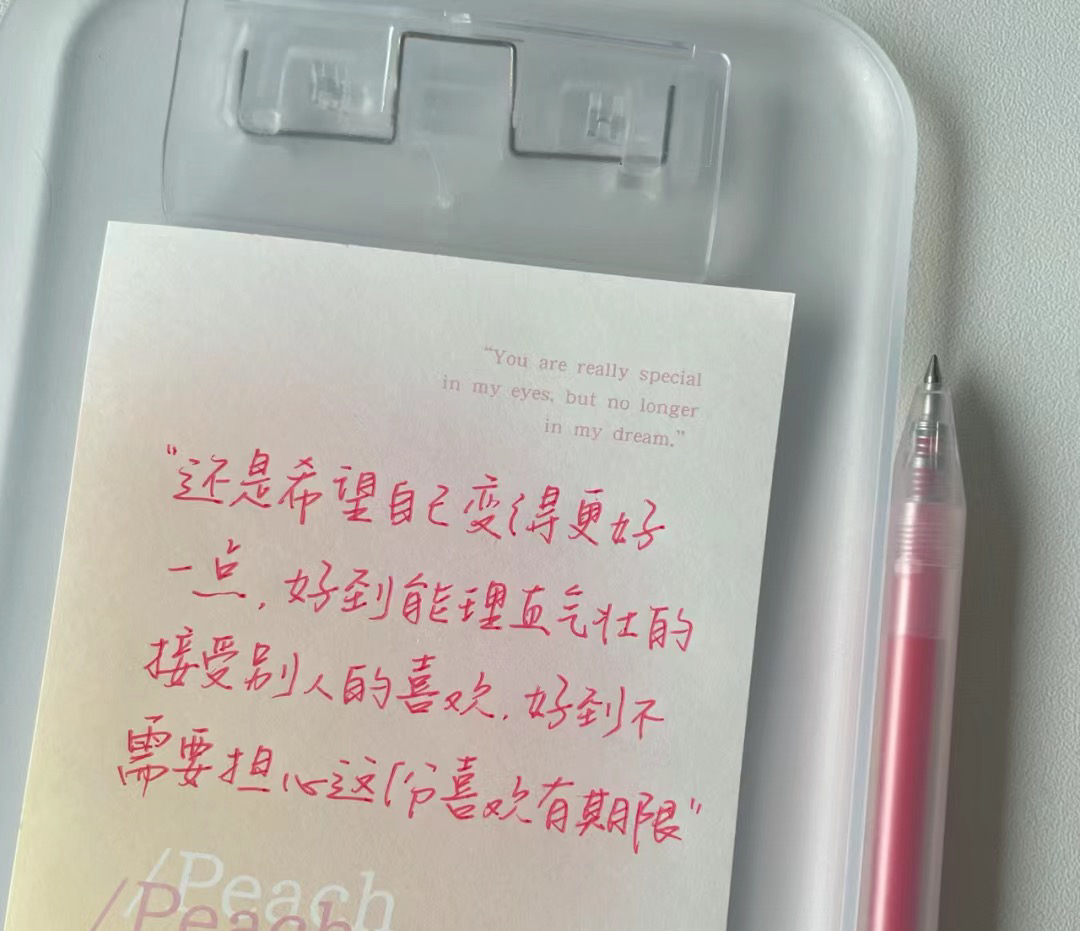 “You are really special
in my eyes, but no longer
in my dream.”
“还是希望自己变得更好
一点，好到能理直气壮的
接受别人的喜欢，好到不
需要担心这份喜欢有期限”
/Peach
/Peach